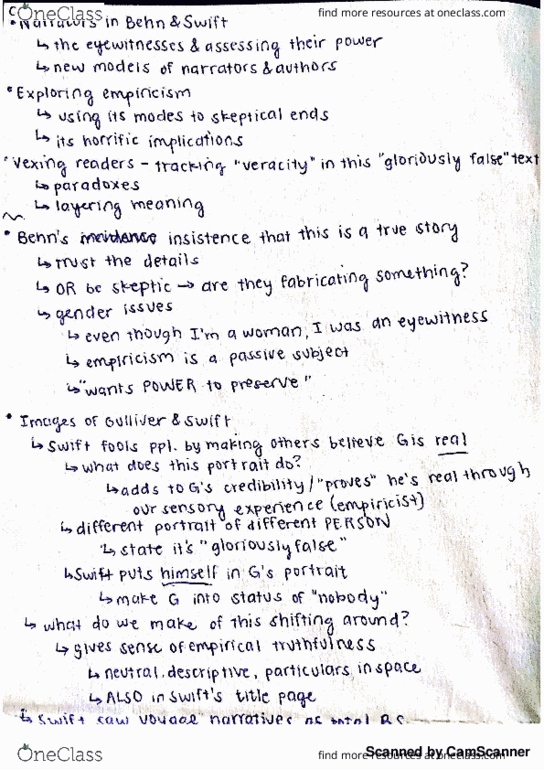 find more resources at oneclass.com
OneClass
• Narrators in Behn & Swift
↳ the eyewitnesses & assessing their power
↳ new models of narrators & authors
• Exploring empiricism
↳ using its modes to skeptical ends
↳ its horrific implications
• Vexing readers - tracking "veracity" in this "gloriously false" text
↳ paradoxes
↳ layering meaning
• Behn's insistence that this is a true story
↳ trust the details
↳ OR be skeptic → are they fabricating something?
↳ gender issues
↳ even though I'm a woman, I was an eyewitness
↳ empiricism is a passive subject
↳ "wants POWER to preserve"
• Images of Gulliver & Swift
↳ Swift fools ppl. by making others believe G is real
↳ what does this portrait do?
↳ adds to G's credibility / "proves" he's real through
our sensory experience (empiricist)
↳ different portrait of different PERSON
↳ state it's "gloriously false"
↳ Swift puts himself in G's portrait
↳ make G into status of "nobody"
↳ what do we make of this shifting around?
↳ gives sense of empirical truthfulness
↳ neutral, descriptive, particulars in space
↳ ALSO in Swift's title page
↳ Swift saw voyage narratives as total BS
OneClass
find more resources at oneclass.com
Scanned by CamScanner